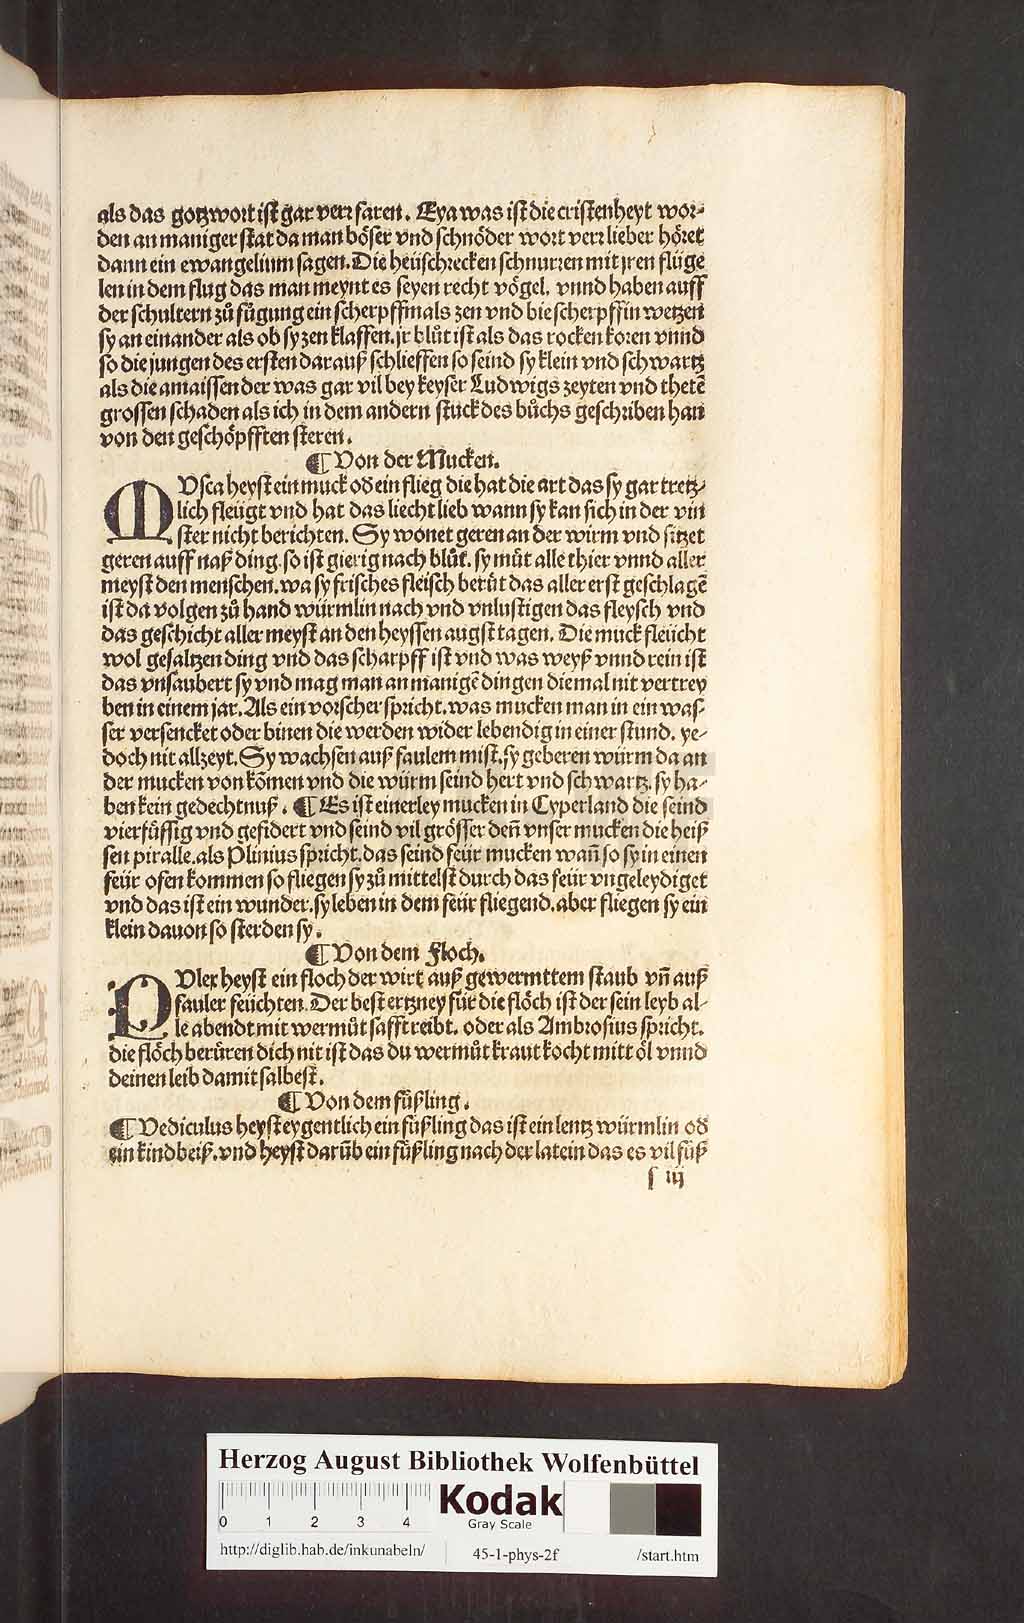 als das gotzwort ist gar verr faren. Eya was ist die cristenheyt wor-
den an maniger stat da man böser vnd schnöder wort verr lieber höret
dann ein ewangelium sagen. Die heüschrecken schnurren mit jren flüge
len in dem flug das man meynt es seyen recht vögel. vnnd haben auff
der schultern zů fůgung ein scherpff in als zen vnd die scherpff in wetzen
sy an einander als ob sy zen klaffen. jr blůt ist als das rocken koren vnnd
so die jungen des ersten darauß schlieffen so seind sy klein vnd schwartz
als die amaissen der was gar vil bey keyser Ludwigs zeyten vnd thetē
grossen schaden als ich in dem andern stuck des bůchs geschriben han
von den geschöpfften steren.
¶ Von der Mucken.
MVsca heyst ein muck od ein flieg die hat die art das sy gar tretz-
lich fleügt vnd hat das liecht lieb wann sy kan sich in der vin
ster nicht berichten. Sy wonet geren an der wirm vnd sitzet
geren auff naß ding. so ist gierig nach blůt. sy můt alle thier vnnd aller
meyst den menschen. wa sy frisches fleisch berůrt das aller erst geschlagē
ist da volgen zů hand würmlin nach vnd vnlustigen das fleysch vnd
das geschicht aller meyst an den heyssen augst tagen. Die muck fleücht
wol gesaltzen ding vnd das scharpff ist vnd was weyß vnnd rein ist
das vnsaubert sy vnd mag man an manigē dingen die mal nit vertrey
ben in einem jar. Als ein vorscher spricht. was mucken man in ein was-
ser versencket oder binen die werden wider lebendig in einer stund. ye-
doch nit allzeyt. Sy wachsen auß faulem mist. sy geberen würm da an
der mucken von kōmen vnd die würm seind hert vnd schwartz. sy ha-
ben kein gedechtnuß. ¶ Es ist einerley mucken in Cyperland die seind
vierfůssig vnd gefidert vnd seind vil grösser deñ vnser mucken die heiß
sen piralle. als Plinius spricht. das seind feür mucken wañ so sy in einen
feür ofen kommen so fliegen sy zů mittelst durch das feür vngeleydiget
vnd das ist ein wunder. sy leben in dem feür fliegend. aber fliegen sy ein
klein dauon so sterden sy.
¶ Von dem Floch.
PVlex heyst ein floch der wirt auß gewermttem staub vñ auß
fauler feüchten. Der best ertzney für die flöch ist der sein leyb al-
le abendt mit wermůt safft reibt. oder als Ambrosius spricht.
die flöch berůren dich nit ist das du wermůt kraut kocht mitt öl vnnd
deinen leib damit salbest.
¶ Von dem fůßling.
¶ Pediculus heyst eygentlich ein fůßling das ist ein lentz würmlin od
ein kind beiß. vnd heyst darūb ein fůßling nach der latein das es vil fůß
s iij
Herzog August Bibliothek Wolfenbüttel
0 1 2 3 4
Kodak
Gray Scale
http://diglib.hab.de/inkunabeln/ 45-1-phys-2f /start.htm